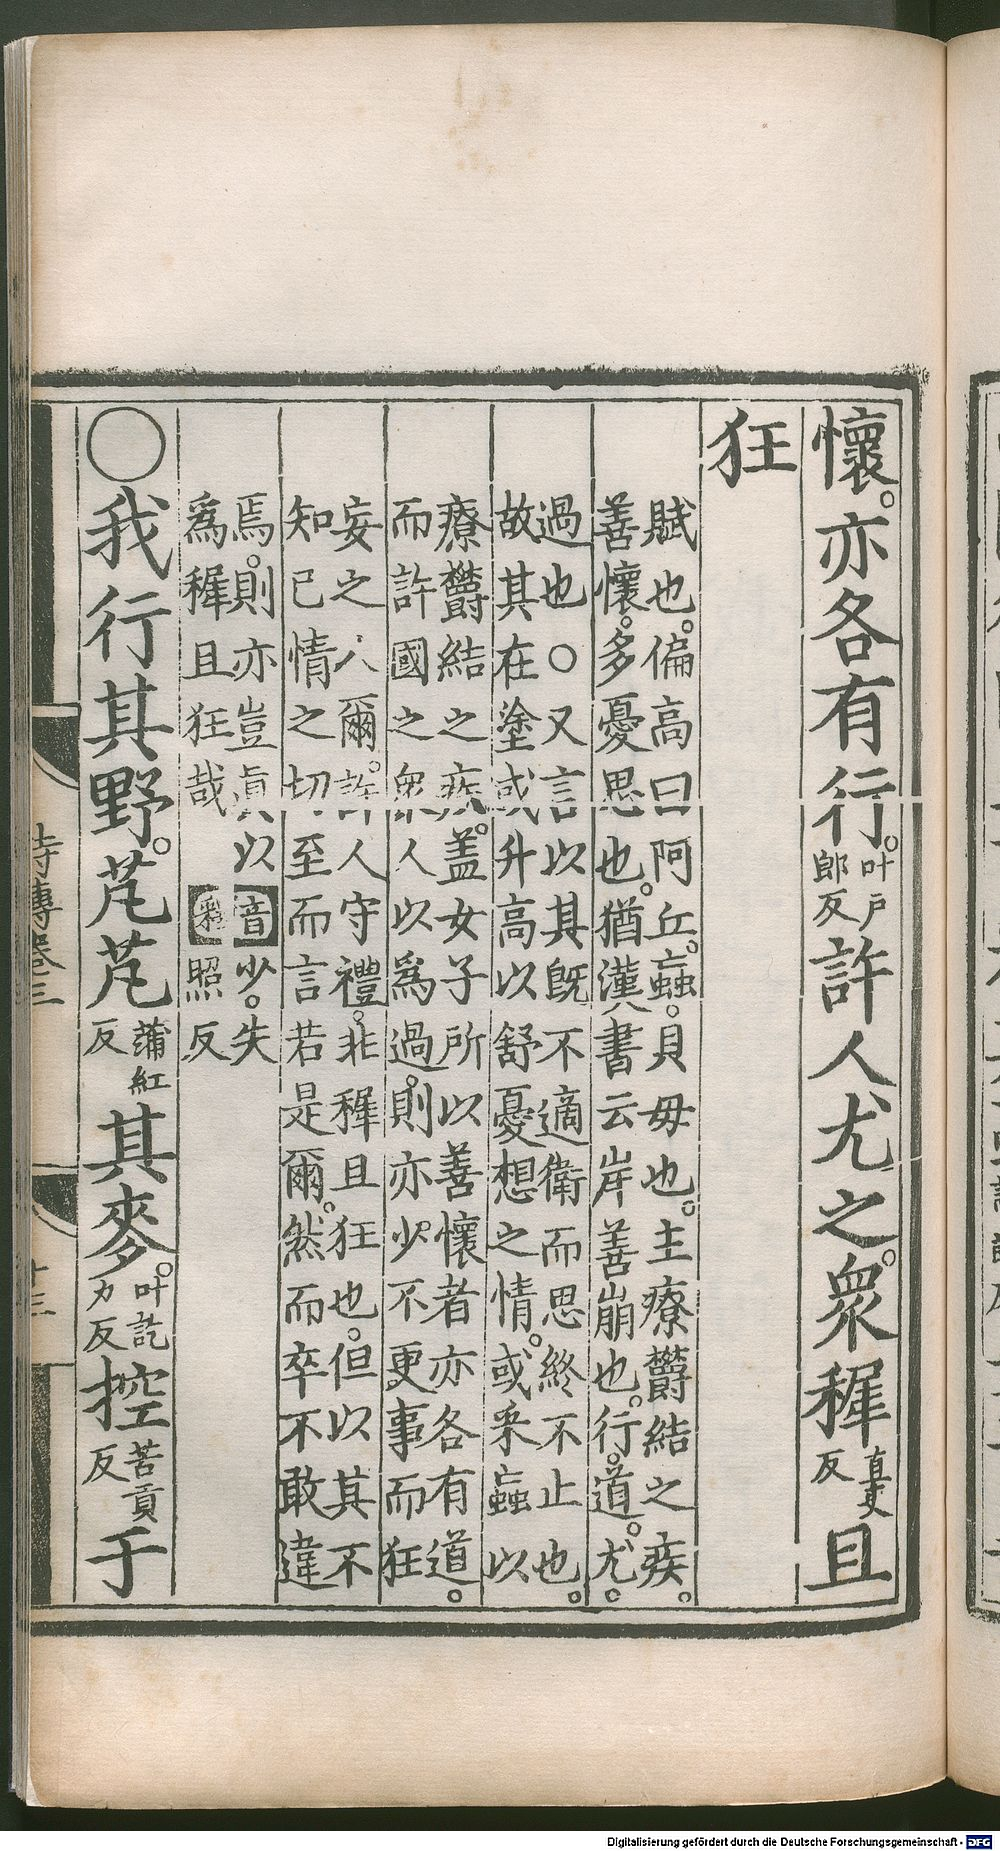 懷。亦各有行。叶戶郎反許人尤之。衆穉直吏反且
狂
賦也。偏高曰阿丘。蝱。貝母也。主療鬱結之疾。
善懷。多憂思也。猶漢書云岸善崩也。行。道。尤。
過也○又言以其旣不適衛而思終不止也。
故其在塗或升高以舒憂想之情。或采蝱以
療鬱結之疾。蓋女子所以善懷者亦各有道。
而許國之衆人以爲過。則亦少不更事而狂
妄之人爾。許人守禮。非穉且狂也。但以其不
知已情之切至而言若是爾。然而卒不敢違
焉。則亦豈眞以音少。失
爲穉且狂哉釋照反
○我行其野。芃芃蒲紅反其麥。叶訖力反控苦貢反于
詩傳卷三
十三
Digitalisierung gefördert durch die Deutsche Forschungsgemeinschaft - DFG